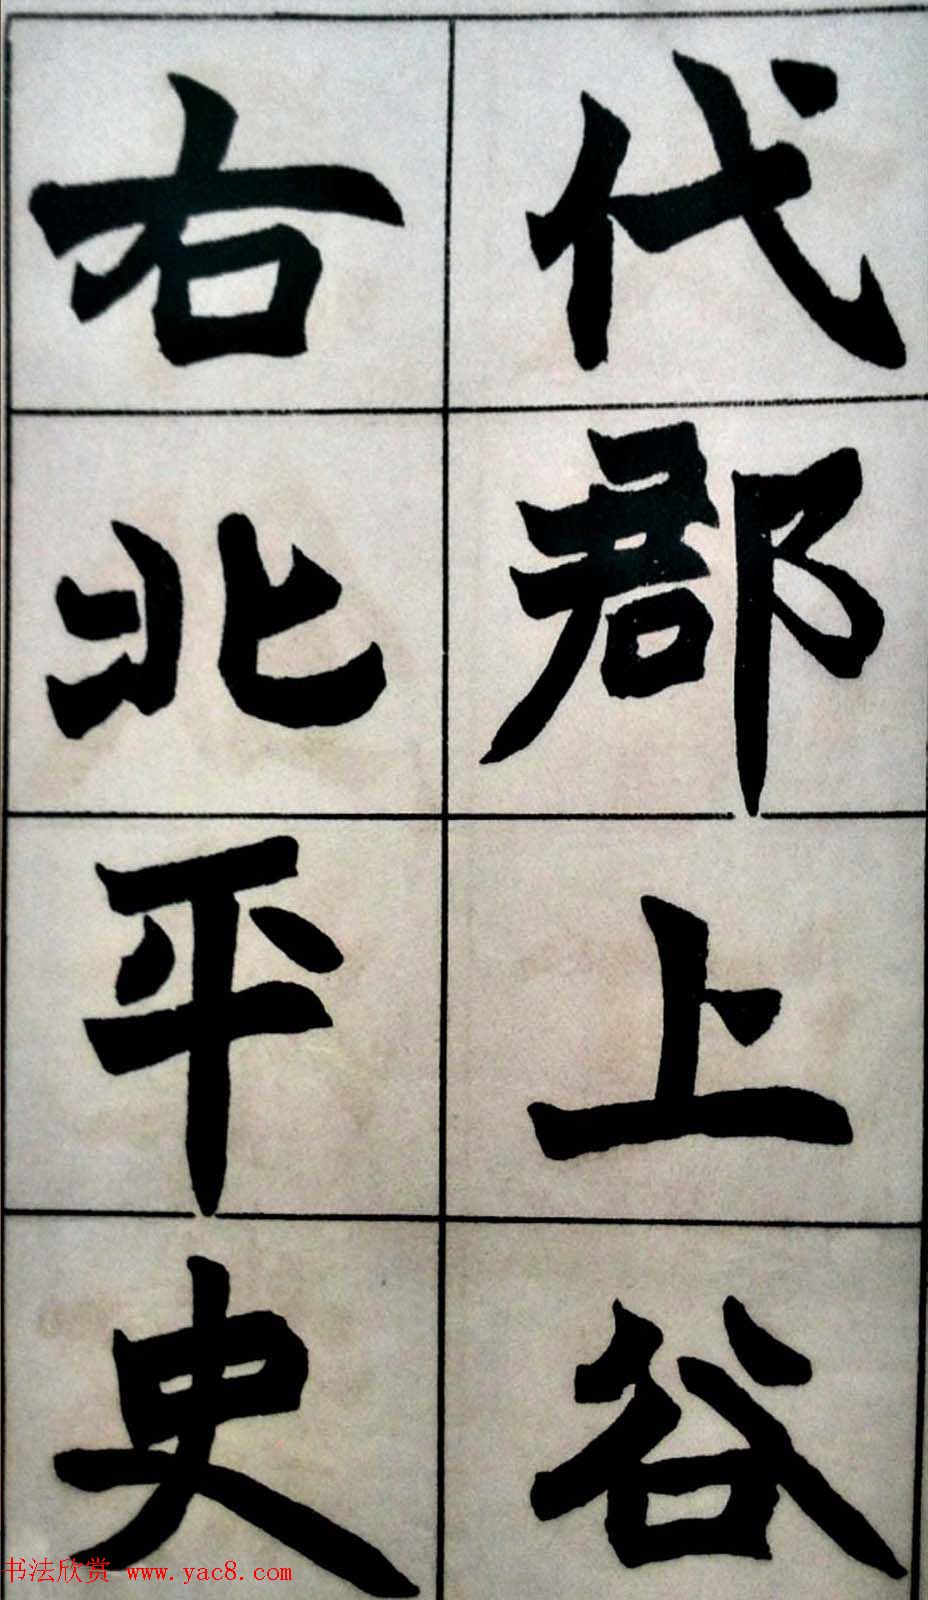 代郡上谷
右北平史
书法欣赏 www.yac8.com